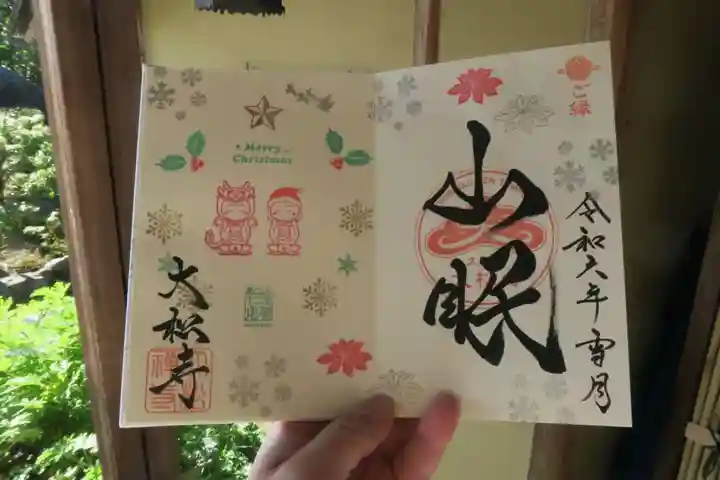 ご縁
山眠
令和六年雪月
Merry
Christmas
大松寺